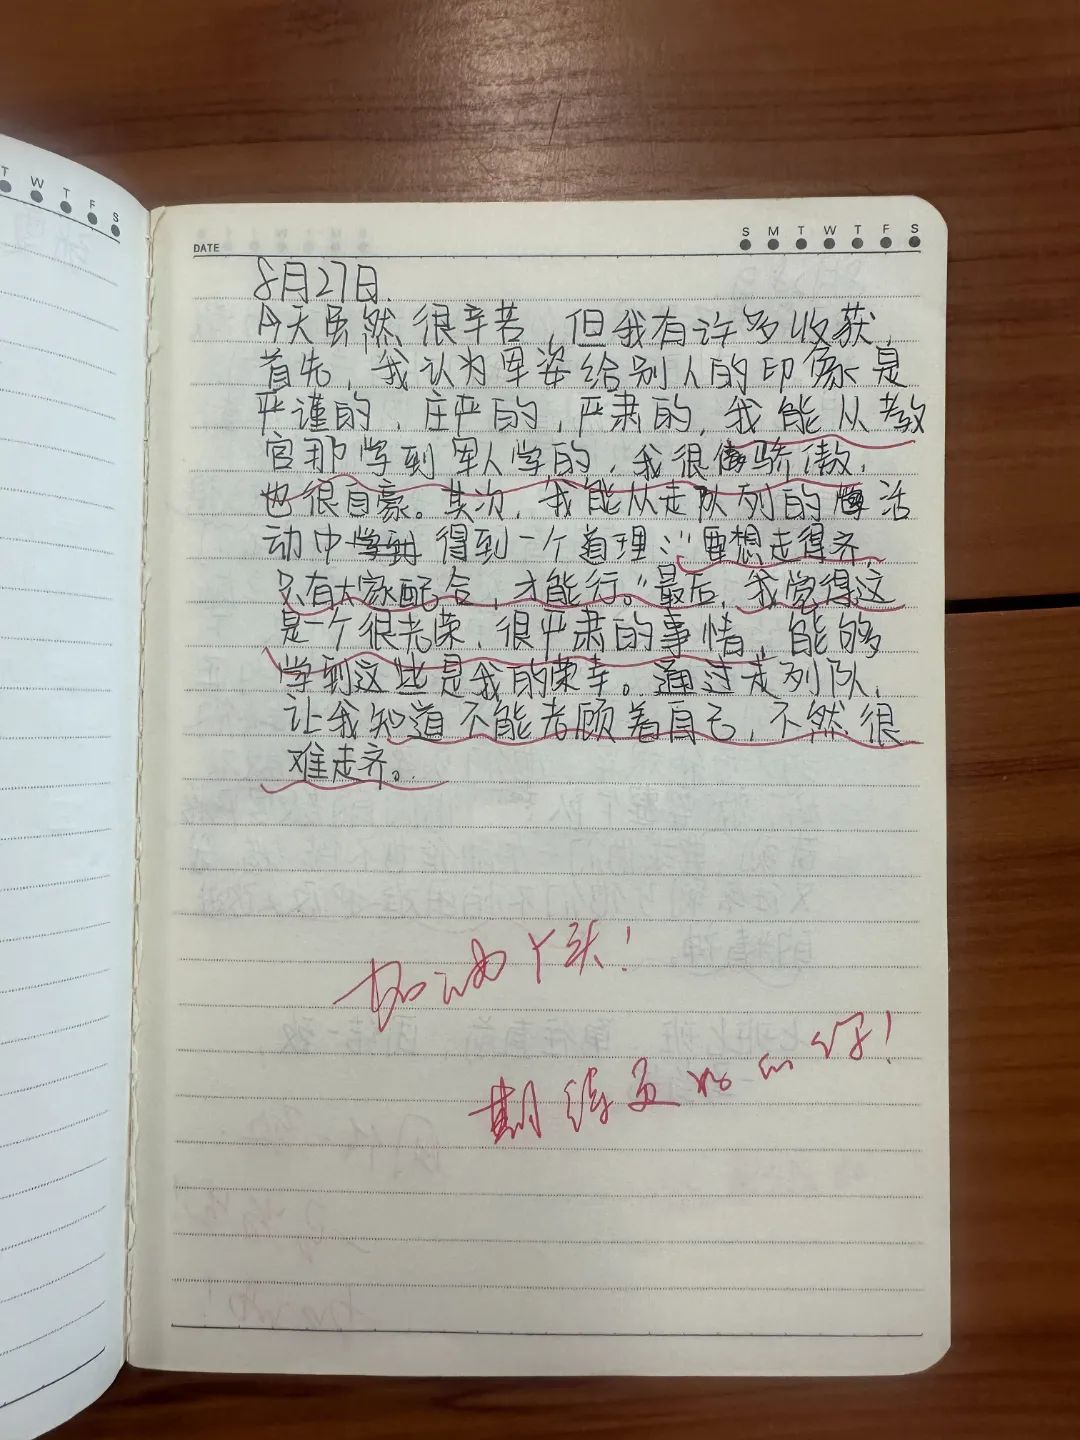 T W T F S
DATE
S M T W T F S
8月27日.
今天虽然很辛苦,但我有许多收获,
首先,我认为军姿给别人的印象是
严谨的,庄严的,严肃的,我能从教
官那学到军人学的,我很骄傲,
也很自豪。其次,我能从走队列的活
动中得到一个道理:“要想走得齐,
只有大家配合,才能行。”最后,我觉得这
是一个很光荣,很严肃的事情,能够
学到这些是我的荣幸。通过走列队,
让我知道不能老顾着自己,不然很
难走齐。
加油丫头!
期待更好的你!